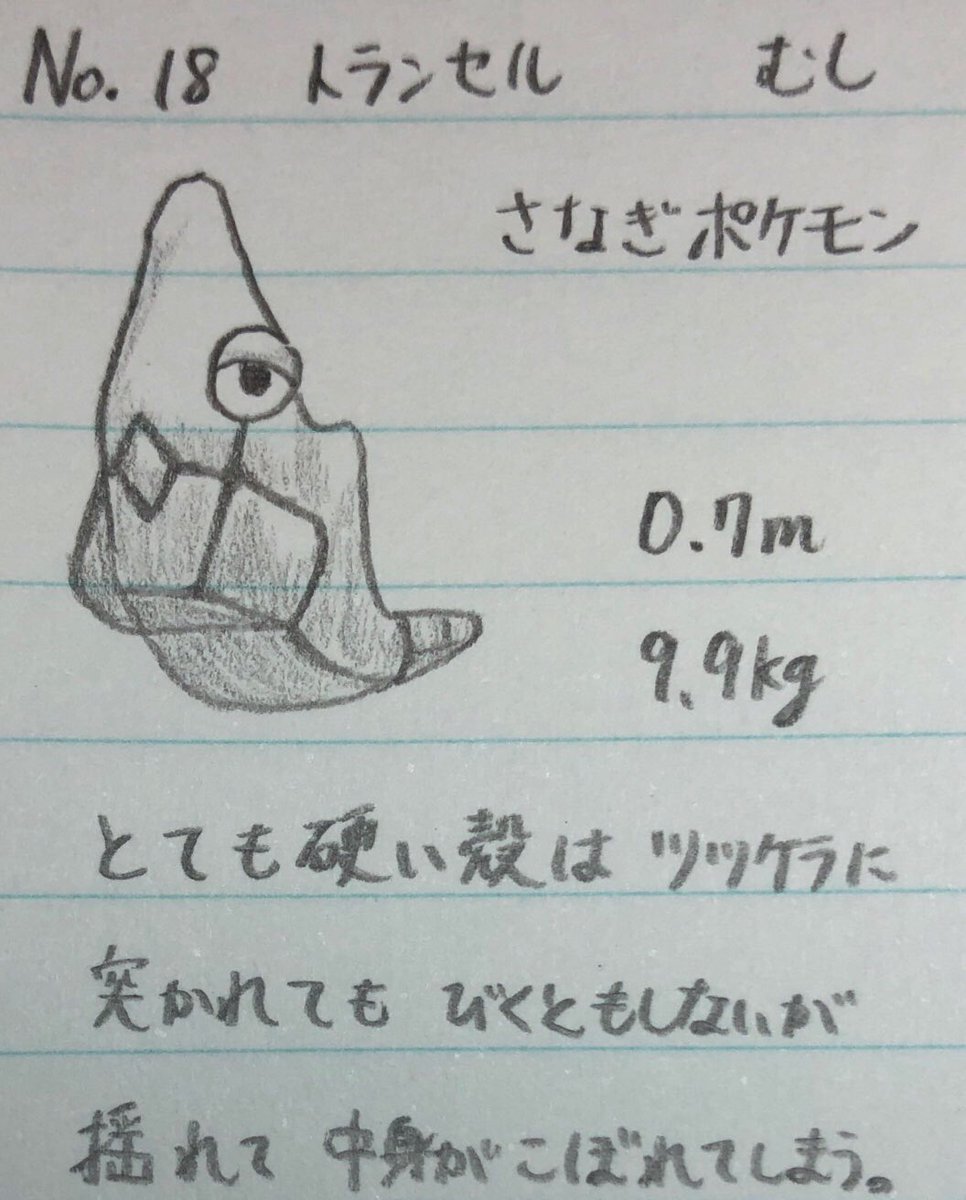 No. 18 トランセル むし
さなぎポケモン
0.7m
9.9kg
とても硬い殻は ツツケラに
突かれても びくともしないが
揺れて 中身がこぼれてしまう。